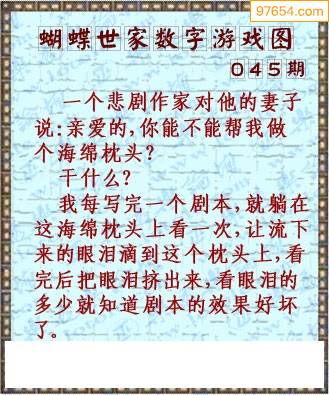 97654.com
蝴蝶世家数字游戏图
045期
一个悲剧作家对他的妻子
说:亲爱的,你能不能帮我做
个海绵枕头?
干什么?
我每写完一个剧本,就躺在
这海绵枕头上看一次,让流下
来的眼泪滴到这个枕头上,看
完后把眼泪挤出来,看眼泪的
多少就知道剧本的效果好坏
了。